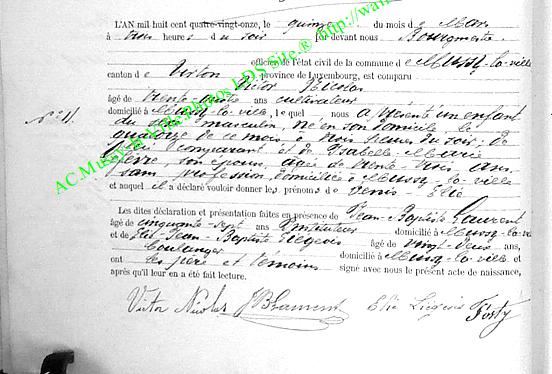 L'AN mil huit cent quatre-vingt-onze, le quinze du mois de Mars
à trois heures du soir par devant nous Bourgmestre
officier de l'état civil de la commune de Mussy-la-ville
canton de Virton province de Luxembourg, est comparu
Victor Nicolas
âgé de trente-quatre ans cultivateur
domicilié à Mussy-la-ville, lequel nous a présenté un enfant
N° 11.
du sexe masculin, né en son domicile le
quatorze de ce mois à trois heures du soir; de
lui comparant et de Isabelle Marie
son épouse, âgée de trente trois ans,
sans profession domiciliée à Mussy-la-ville
et auquel il a déclaré vouloir donner les prénoms de Denis Elie
Les dites déclaration et présentation faites en présence de Jean-Baptiste Laurent
âgé de cinquante-sept ans Instituteur domicilié à Mussy-la-ville
et de Elie Jean-Baptiste Liégeois âgé de vingt-deux ans,
boulanger domicilié à Mussy-la-ville et
ont les père et témoins signé avec nous le présent acte de naissance,
après qu'il leur en a été fait lecture.
Victor Nicolas JB Laurent Elie Liégeois Forty
AC.Mussy-la-Ville Photos LDS Site.® http://wa